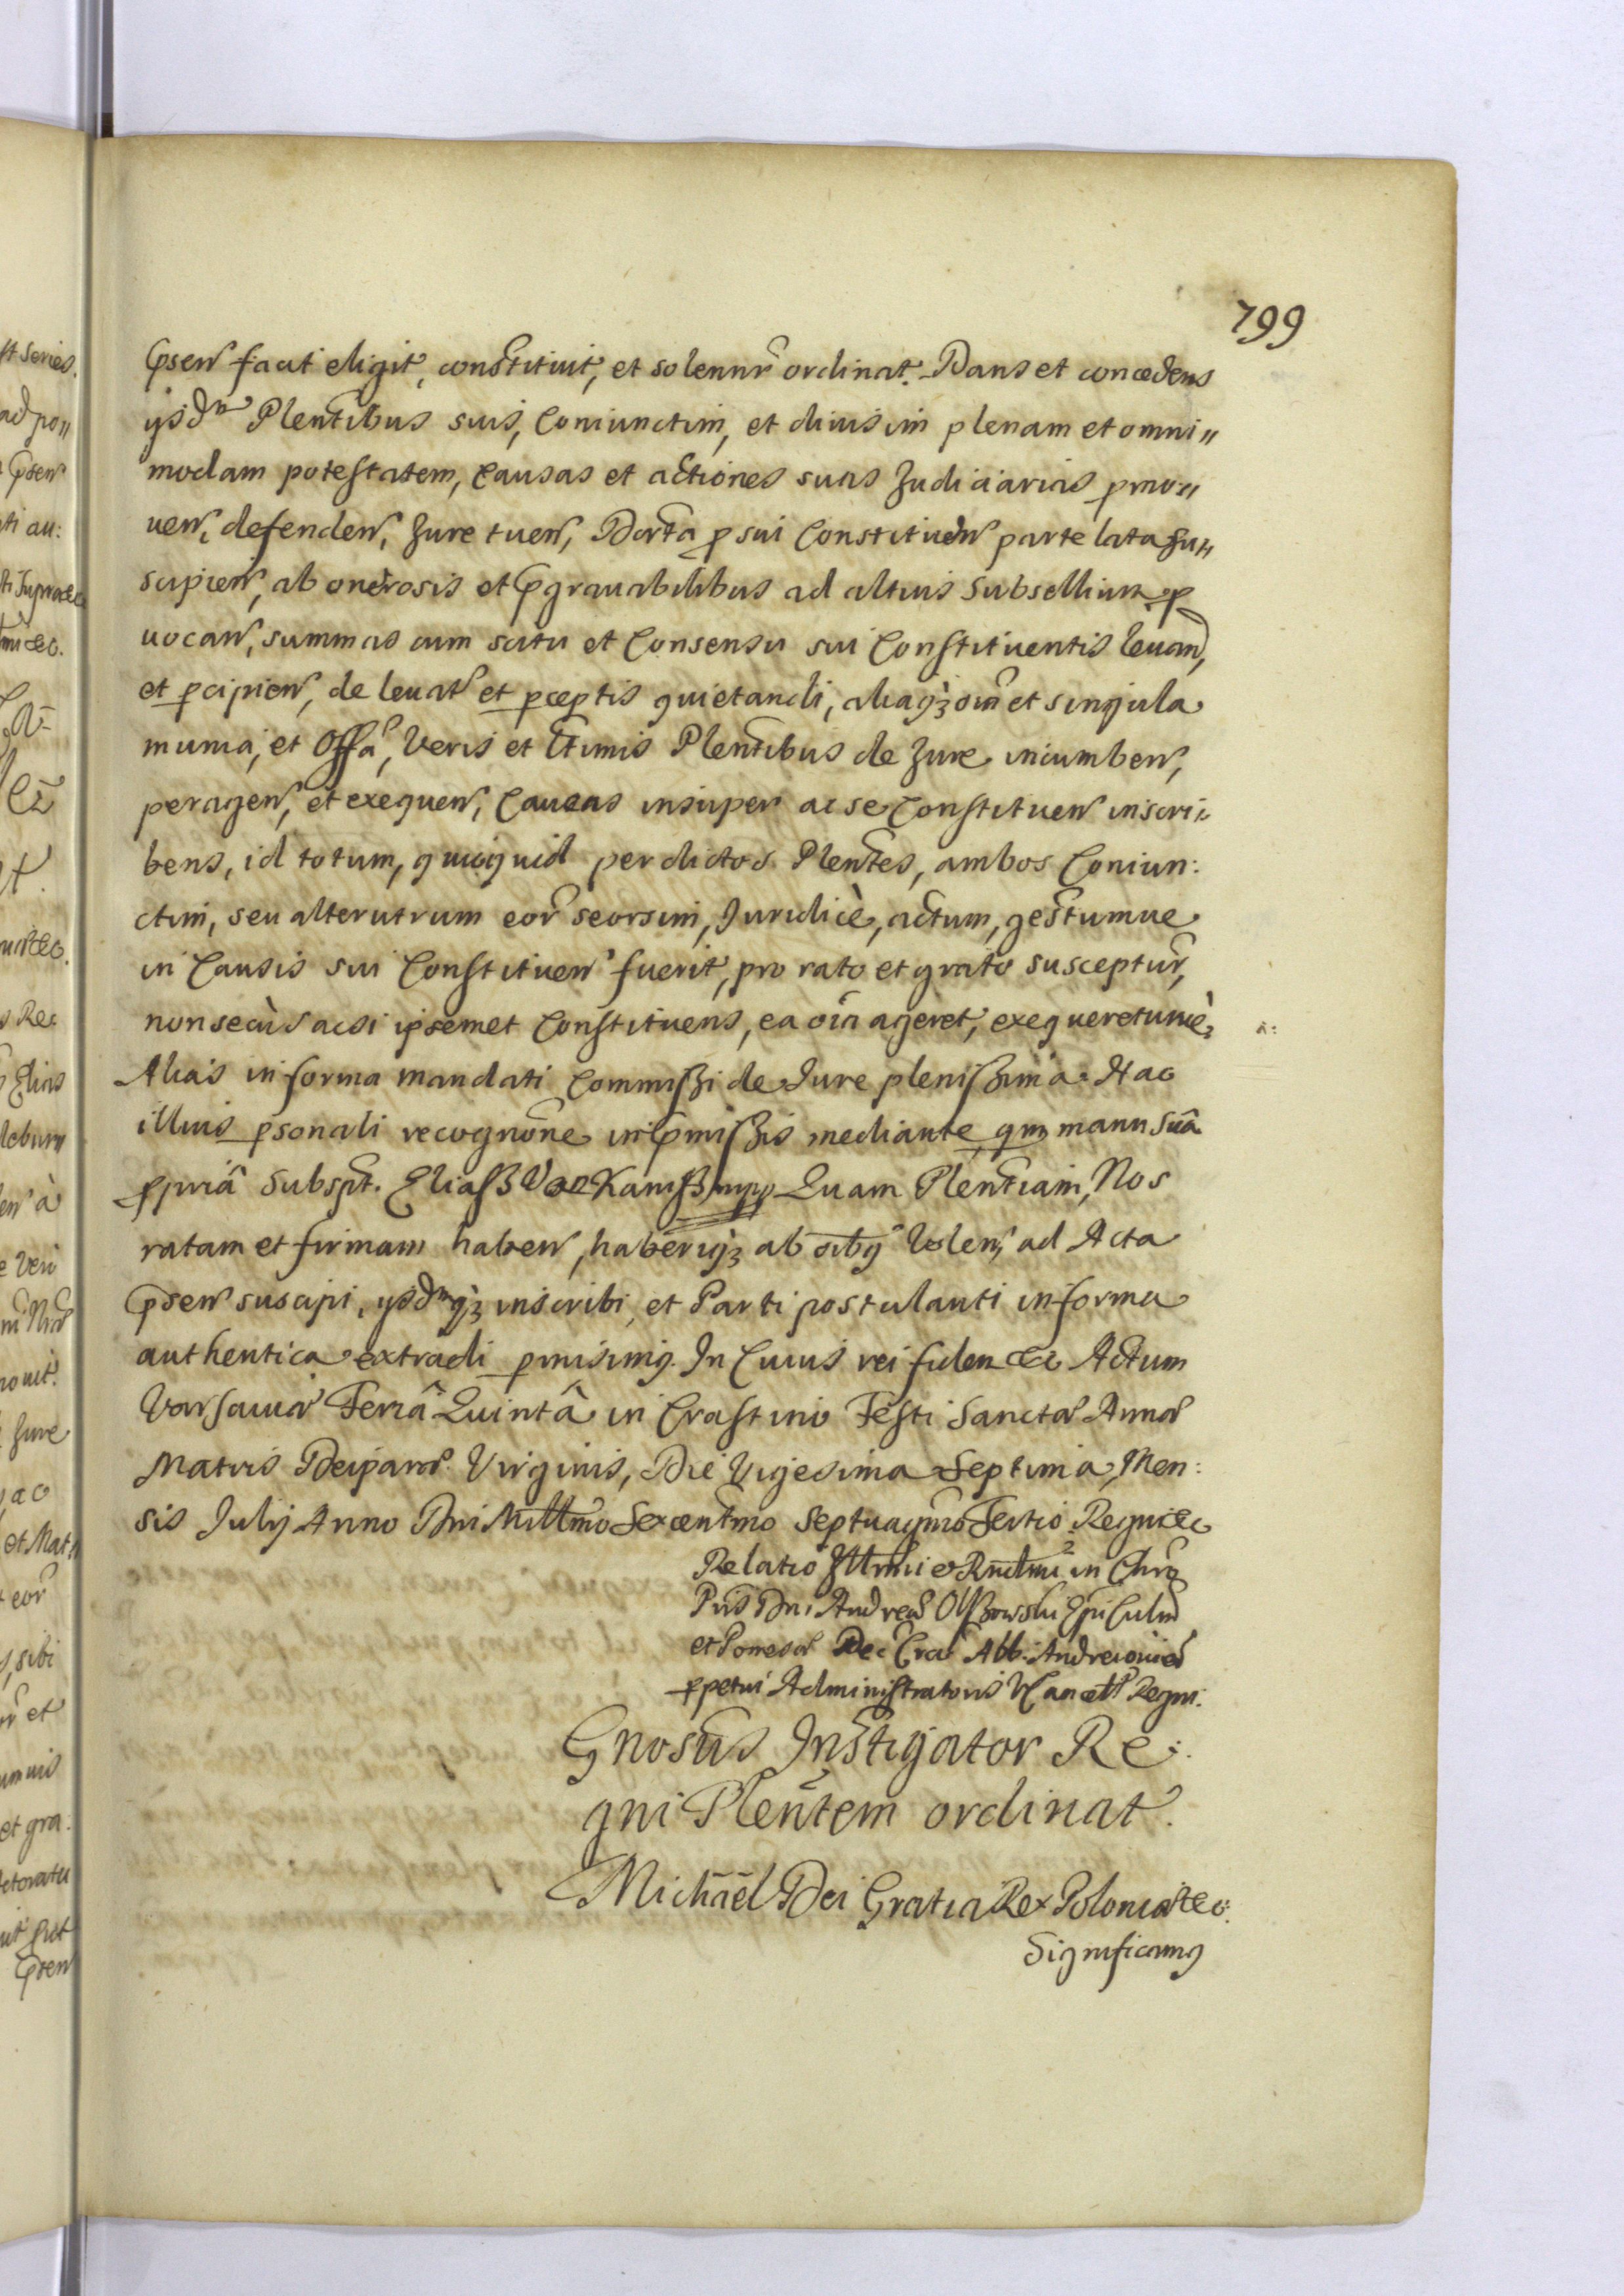 799
p̃sen̄ facit eligit, constituit, et solennr̃ ordinat. Dans et concedens
ysdm̃ Plent̃ibus suis, Coniunctim, et diuisim plenam et omni⹀
modam potestatem, Causas et actiones suas Judiciarias p̱mo⹀
uen̄, defenden̄, Jure tuen̄, Dcrt̃a p̱ sui Constituen̄ parte lata sus⹀
scipien̄, ab onerosis et p̃grauabilibus ad altius Subsellium p̱
uocan̄, summas cum scitu et Consensu sui Constituentis leuan̄,
et p̱cipien̄, de leuat̃ et p̱ceptis quietandi, aliaqȝ oīa et singula
munia, et Offa͠, Veris et Lt̃imis Plent̃ibus de Jure incumben̄,
peragen̄, et exequen̄, Causas insuper ac se Constituen̄ inscri⹀
bens, id totum, quicquid per dictos Plent̃es, ambos Coniun:
ctim, seu alterutrum eor̃ seorsim, Juridicè, actum, gestumue
in Causis sui Constituen̄ fuerit, pro rato et grato susceptur̃,
non secùs acsi ipsemet Constituens, ea oīa ageret, exequereturuè,
Alias in forma mandati Commissi de Jure plenissima. Hac
illius p̱sonali recognōne in p̃missis mediante, qm̃ manu suâ
p̱priâ Subspt̃. Eliasz Van Kamsz mpp Quam Plent̃iam, Nos
ratam et firmam haben̄, haberiqȝ ab oībꝯ Volen̄, ad Acta
p̃sen̄ suscipi, ysdm̃qȝ inscribi, et Parti postulanti in forma
authentica extradi p̱misimꝯ. In Cuius rei fidem &c Actum
Varsauiæ Feriâ Quintâ in Crastino Festi Sanctæ Annæ
Matris Deiparæ Virginis, Die Vigesima Septima, Men:
sis July Anno Dni Mill̃mo Sexcent̃mo Septuagm̃o Tertio. Regni &c
Relatio Jll̃mi et Rnd̃mi in Chrõ
Pris Dni Andreæ Olszowski Epi Culm̃
et Pomesañ
Abb: Andreouień
p̱petui Administratoris VCancell̃ Regni.
Gnosus Instigator Re:
gni Plent̃em ordinat.
Michaël Dei Gratia Rex Poloniæ &c.
Significamꝯ